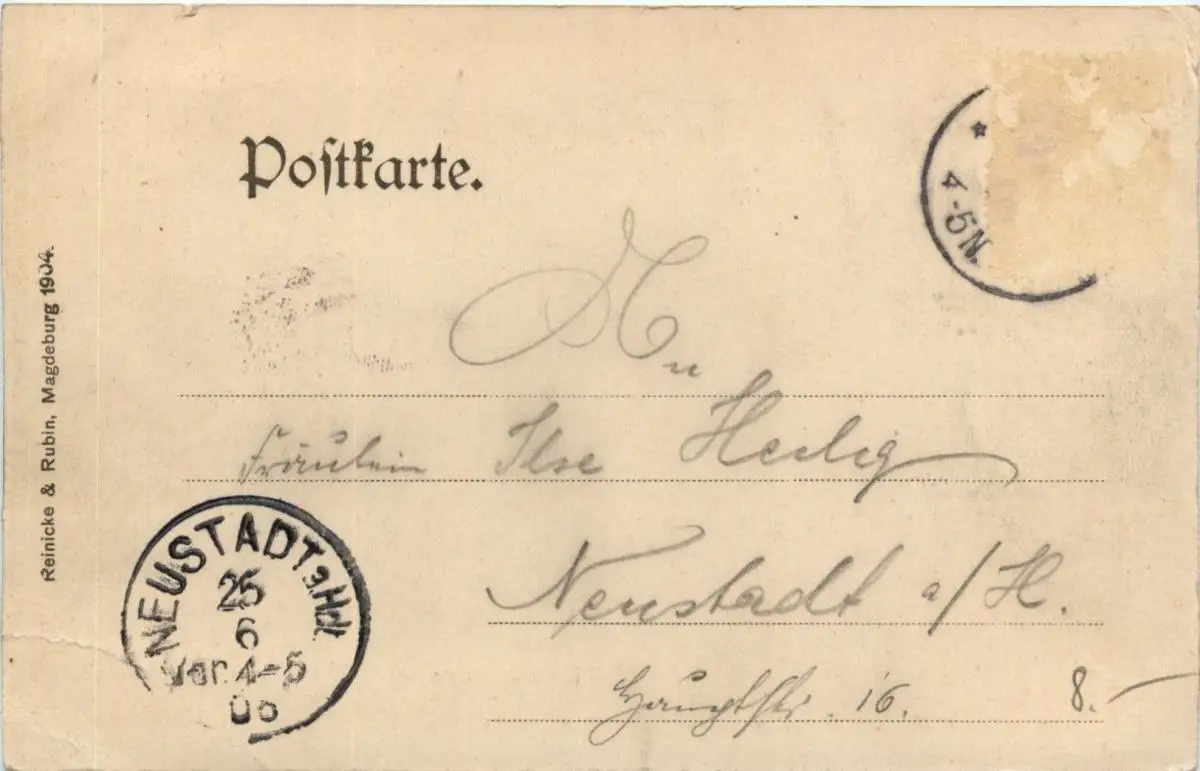 Postkarte.
4-5N.
An
Fräulein Ilse Heilig
Neustadt a/H.
Hauptstr. 16.
8.-
Reinicke & Rubin, Magdeburg 1904.
NEUSTADT a.Hdt.
25
6
Vor. 4-5
06